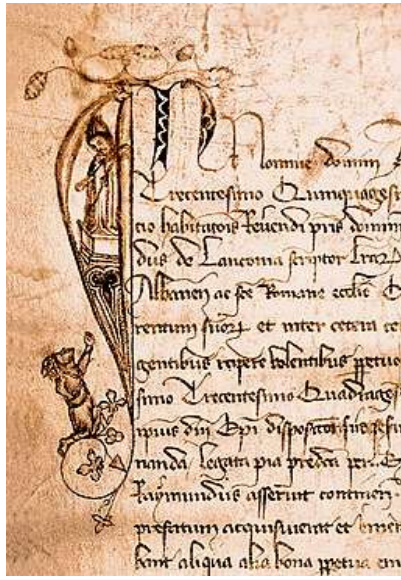 In Nomine domini
Trecentesimo Quinquages
cio habitatois Reuendi pris domin
dus de Lanconia scriptor
Albanen ac sce Romane ecclie
rentium suor et inter cetera
gentibus recipere volentibus ppetuo
simo Trecentesimo Quadrages
ipius dni Epi
nanda legata pia predca per
Raymundus asserunt contineri
prefatum acquisiuerat et
bant aliqua alia bona ppetua em